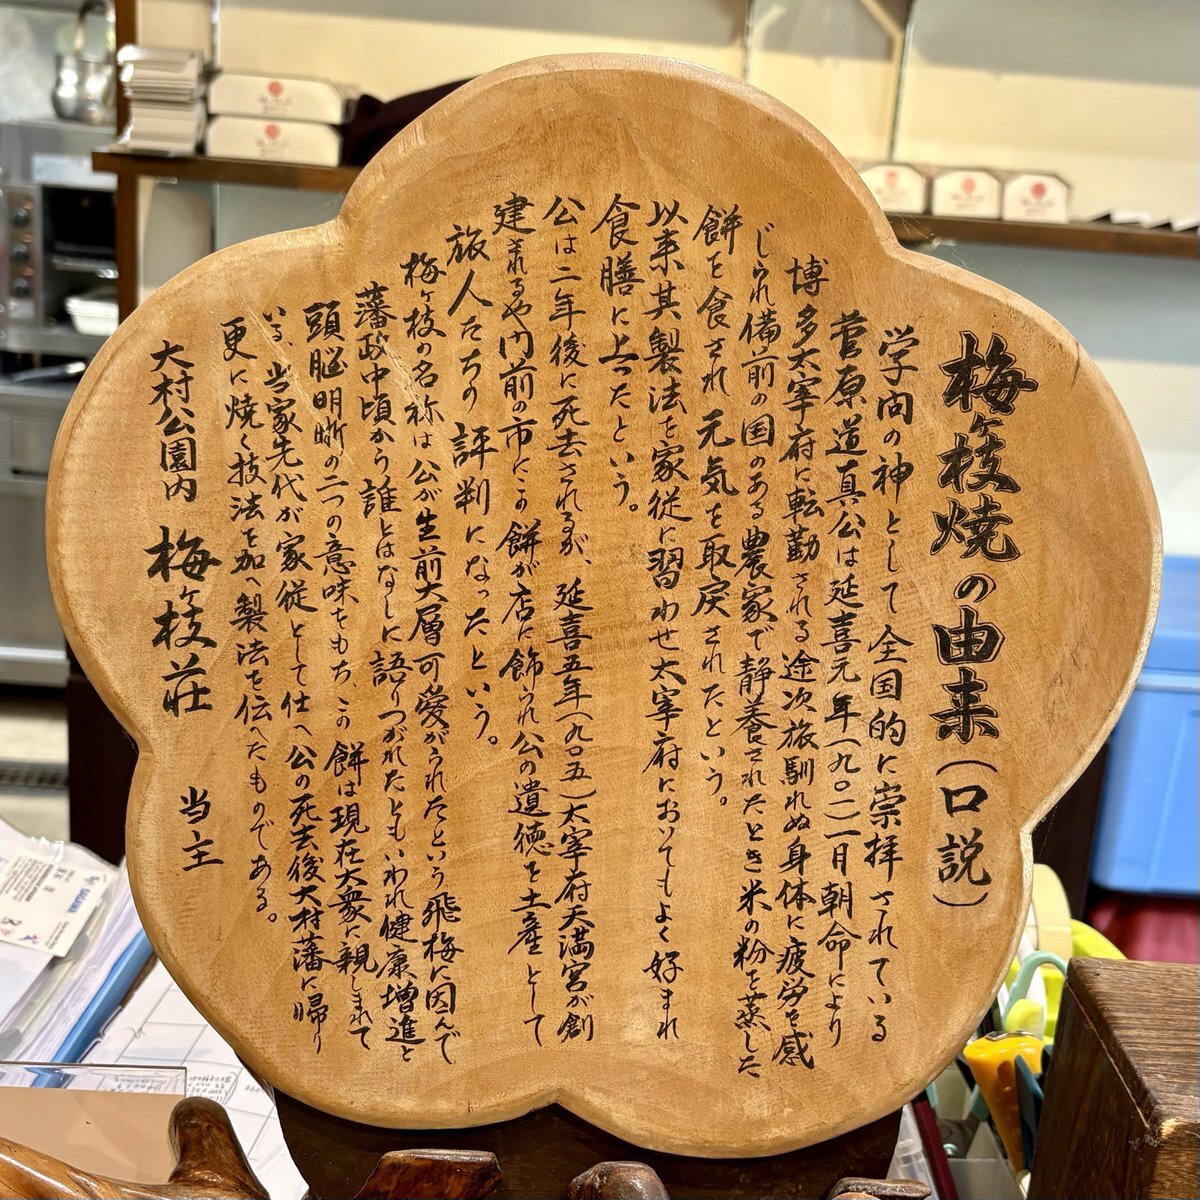 梅ヶ枝焼の由来(口説)
学問の神として全国的に崇拝されている
菅原道真公は延喜元年(九〇一)一月朝命により
博多太宰府に転勤される途次旅馴れぬ身体に疲労を感
じられ備前の国のある農家で静養されたとき米の粉を蒸した
餅を食され元気を取戻されたという。
以来其製法を家従に習わせ太宰府においてもよく好まれ
食膳に上ったという。
公は二年後に死去されるが、延喜五年(九〇五)太宰府天満宮が創
建されるや門前の市にこの餅が店に飾られ公の遺徳を土産として
旅人たちの評判になったという。
梅ヶ枝の名称は公が生前大層可愛がられたという飛梅に因んで
藩政中頃から誰とはなしに語りつがれたともいわれ健康増進と
頭脳明晰の二つの意味をもち、この餅は現在大衆に親しまれて
いる、当家先代が家従として仕へ公の死去後大村藩に帰り
更に焼く技法を加へ製法を伝へたものである。
大村公園内 梅ヶ枝荘 当主